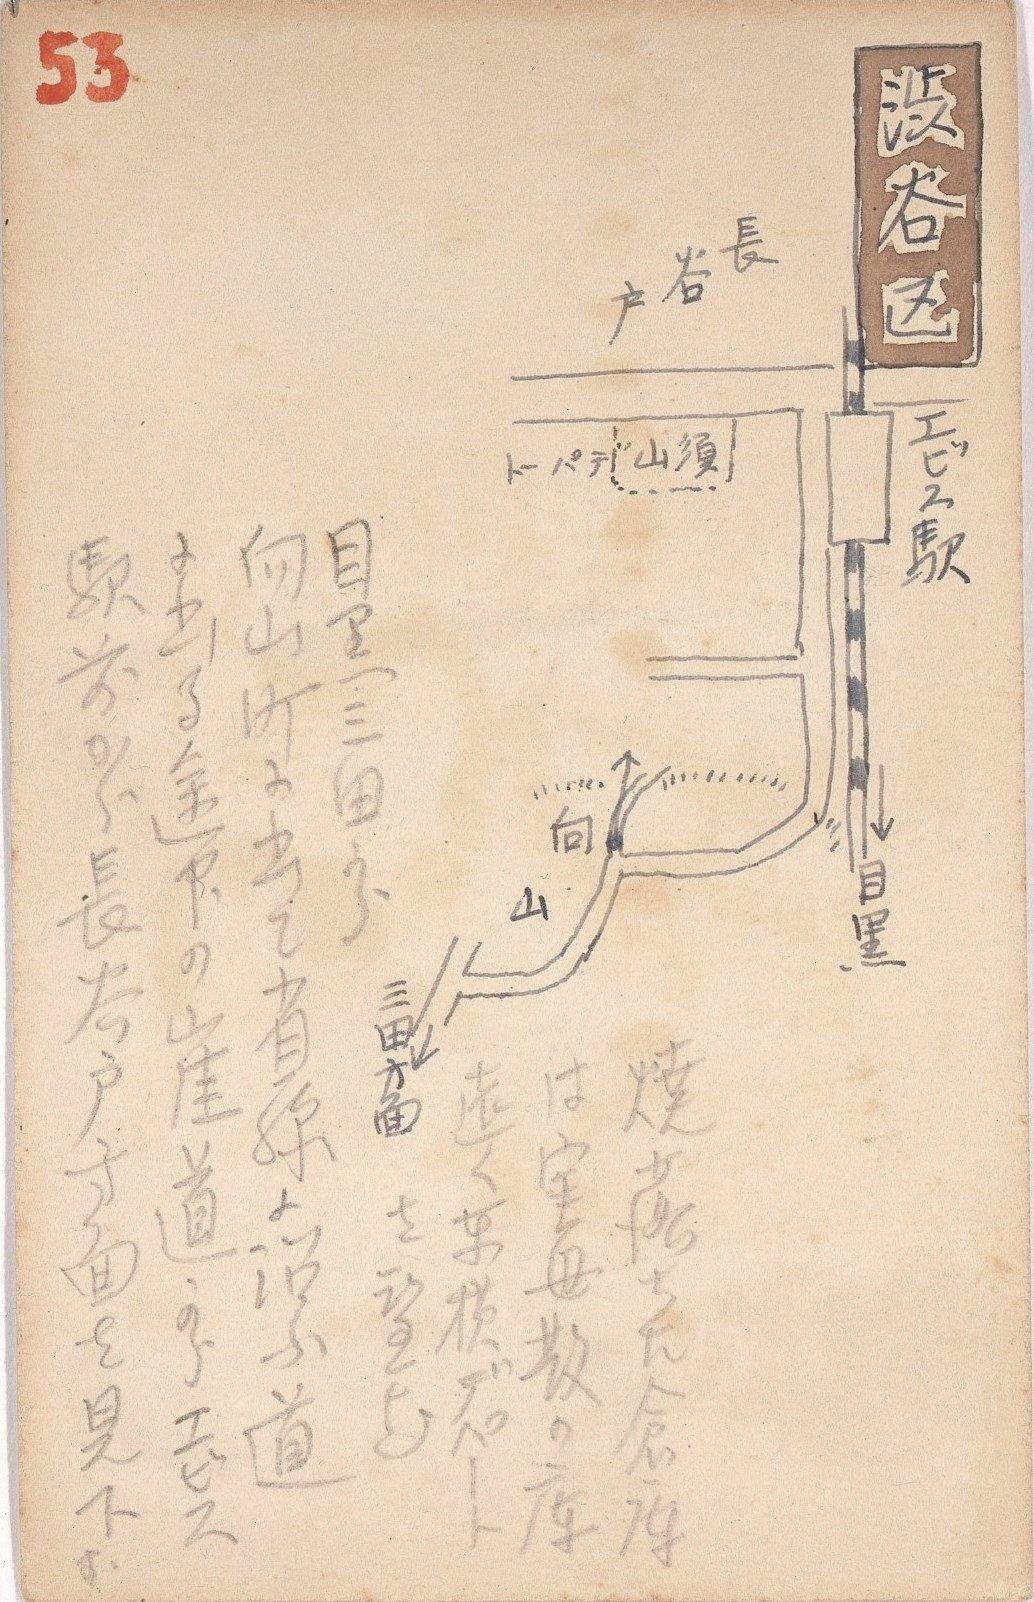 53
渋谷区
長谷戸
エビス駅
須山デパート
向山
目黒
三田方面
焼落ちた倉庫
は
の庫
遠く東横デパート
を望む
目黒三田から
向山町に出て省線に沿ふ道
に出る途中の山崖道からエビス
駅前から長谷戸方面を見下す